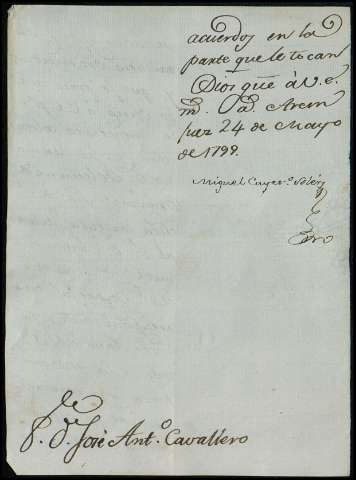 acuerdos en la
parte que le tocan
Dios gue à V. e.
m.s a.s Aran
juez 24 de Mayo
de 1799.
Miguel Cayet.o Solér
S.r D.n José Ant.o Cavallero